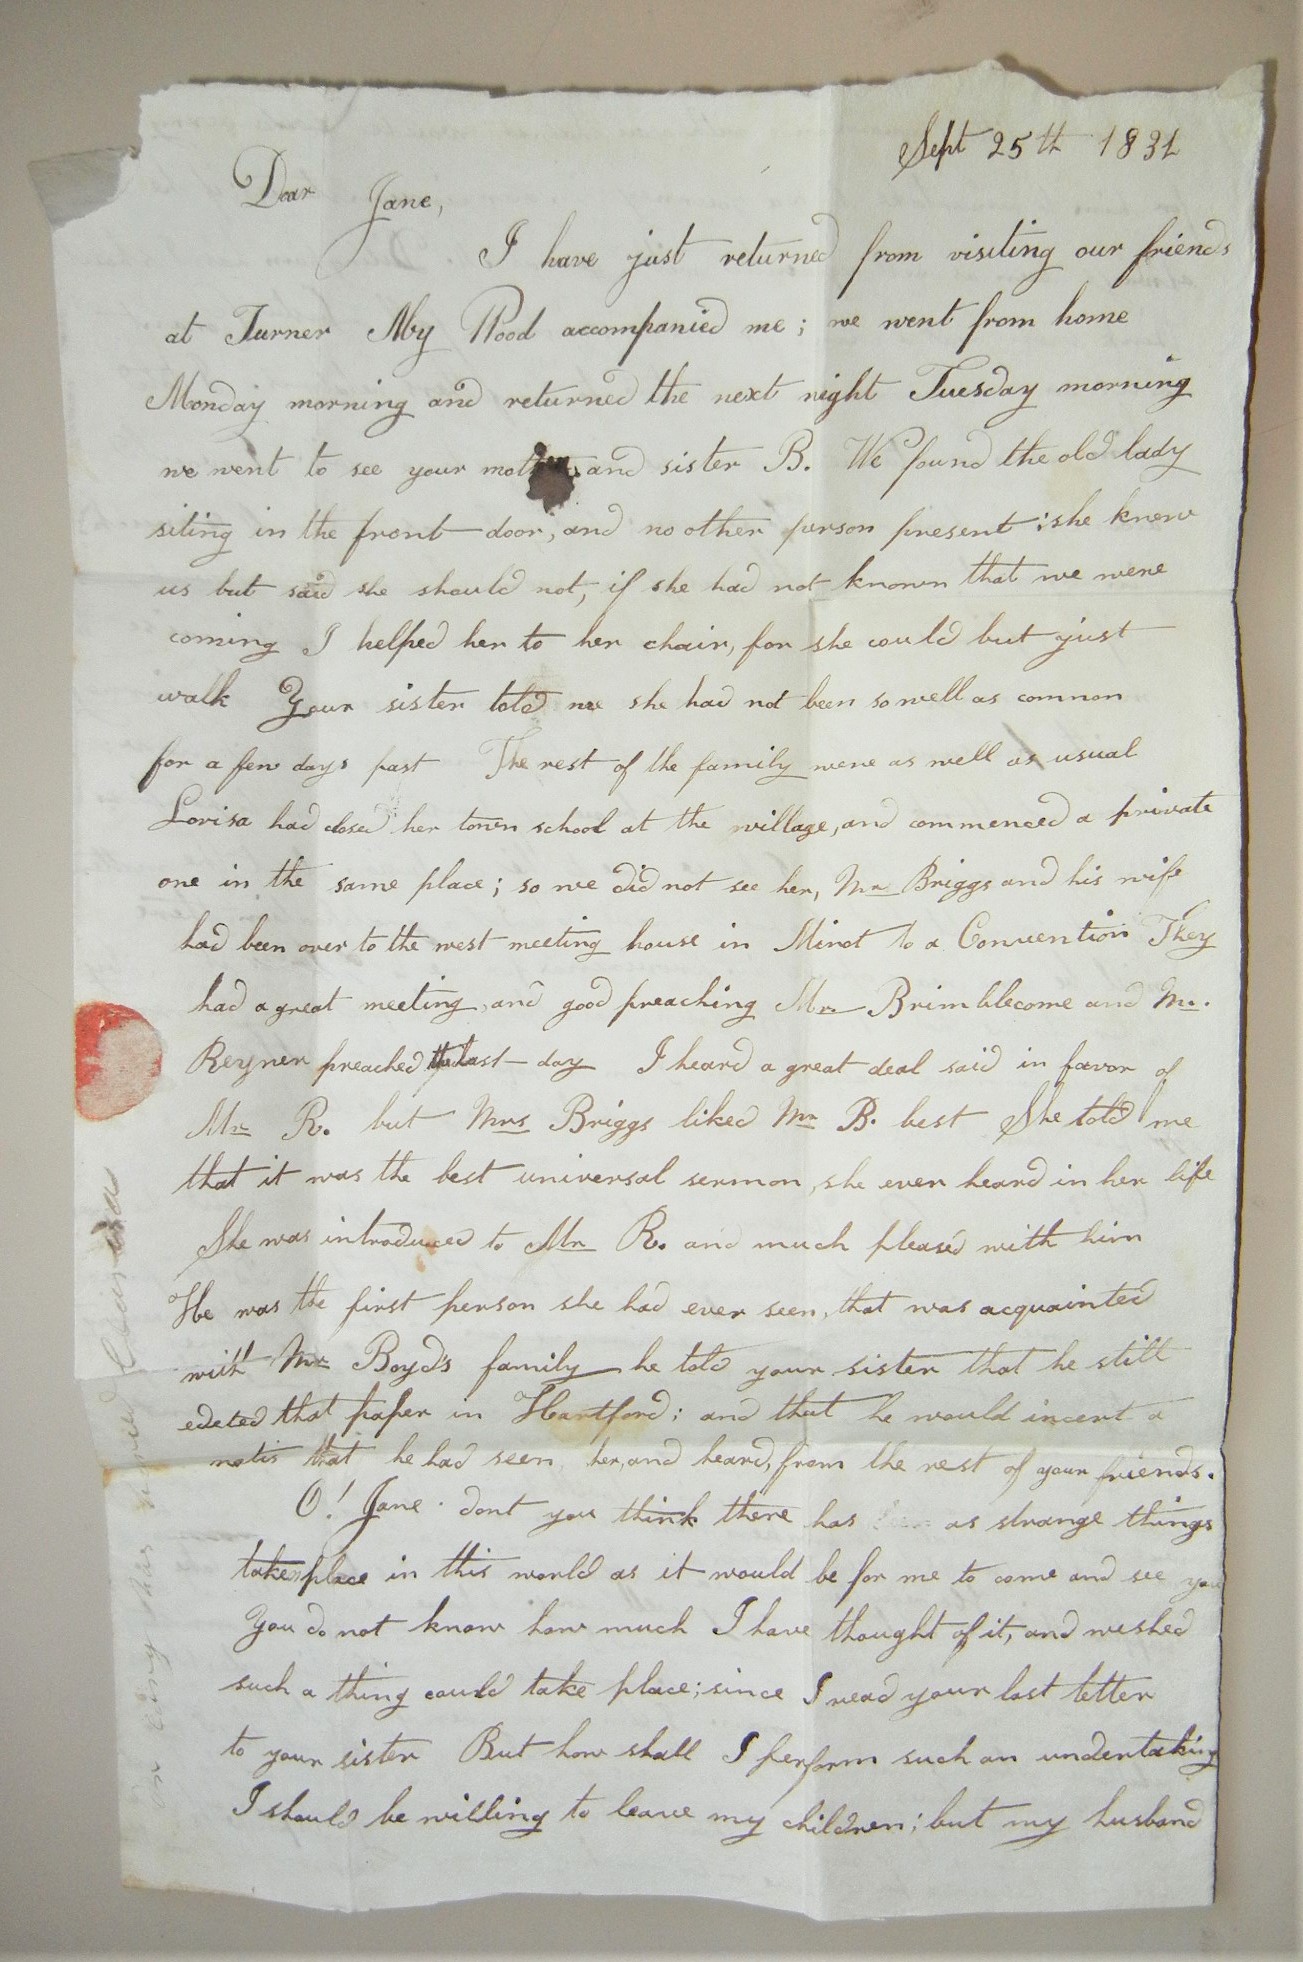 Sept 25th 1831
Dear Jane,
I have just returned from visiting our friends
at Turner My Wood accompanied me; we went from home
Monday morning and returned the next night Tuesday morning
we went to see your mother and sister B. We found the old lady
siting in the front door, and no other person present; she knew
us but said she should not, if she had not known that we were
coming I helped her to her chair, for she could but just
walk Your sister told me she had not been so well as common
for a few days past The rest of the family were as well as usual
Lovisa had closed her town school at the village, and commenced a private
one in the same place; so we did not see her, Mr Briggs and his wife
had been over to the west meeting house in Minot to a Convention They
had a great meeting, and good preaching Mr Brimblecome and Mr.
Reyner preached the last day I heard a great deal said in favor of
Mr R. but Mrs Briggs liked Mr B. best She told me
that it was the best universal sermon, she ever heard in her life
She was introduced to Mr R. and much pleased with him
He was the first person she had ever seen, that was acquainted
with Mr Boyd's family he told your sister that he still
edeted that paper in Hartford; and that he would incert a
notis that he had seen her, and heard, from the rest of your friends.
O! Jane dont you think there has been as strange things
taken place in this world as it would be for me to come and see you
You do not know how much I have thought of it, and weshed
such a thing could take place; since I read your last letter
to your sister But how shall I perform such an undertaking
I should be willing to leave my children; but my husband